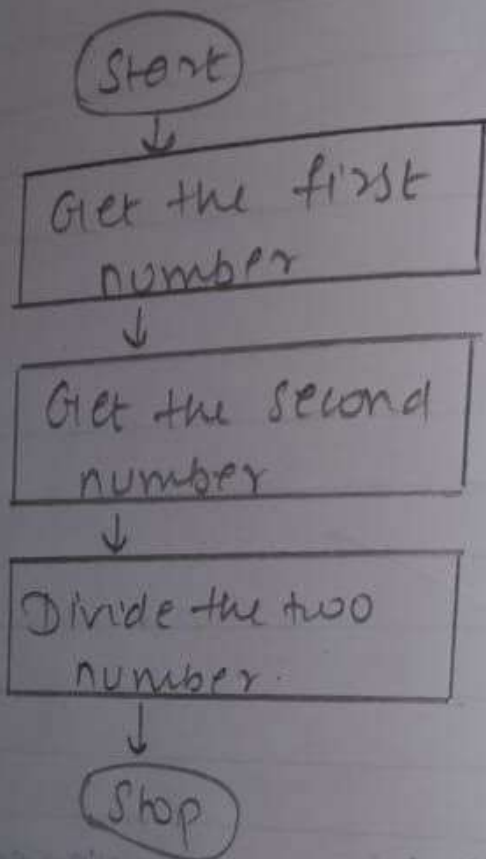 Start
Get the first
number
Get the second
number
Divide the two
number.
Stop